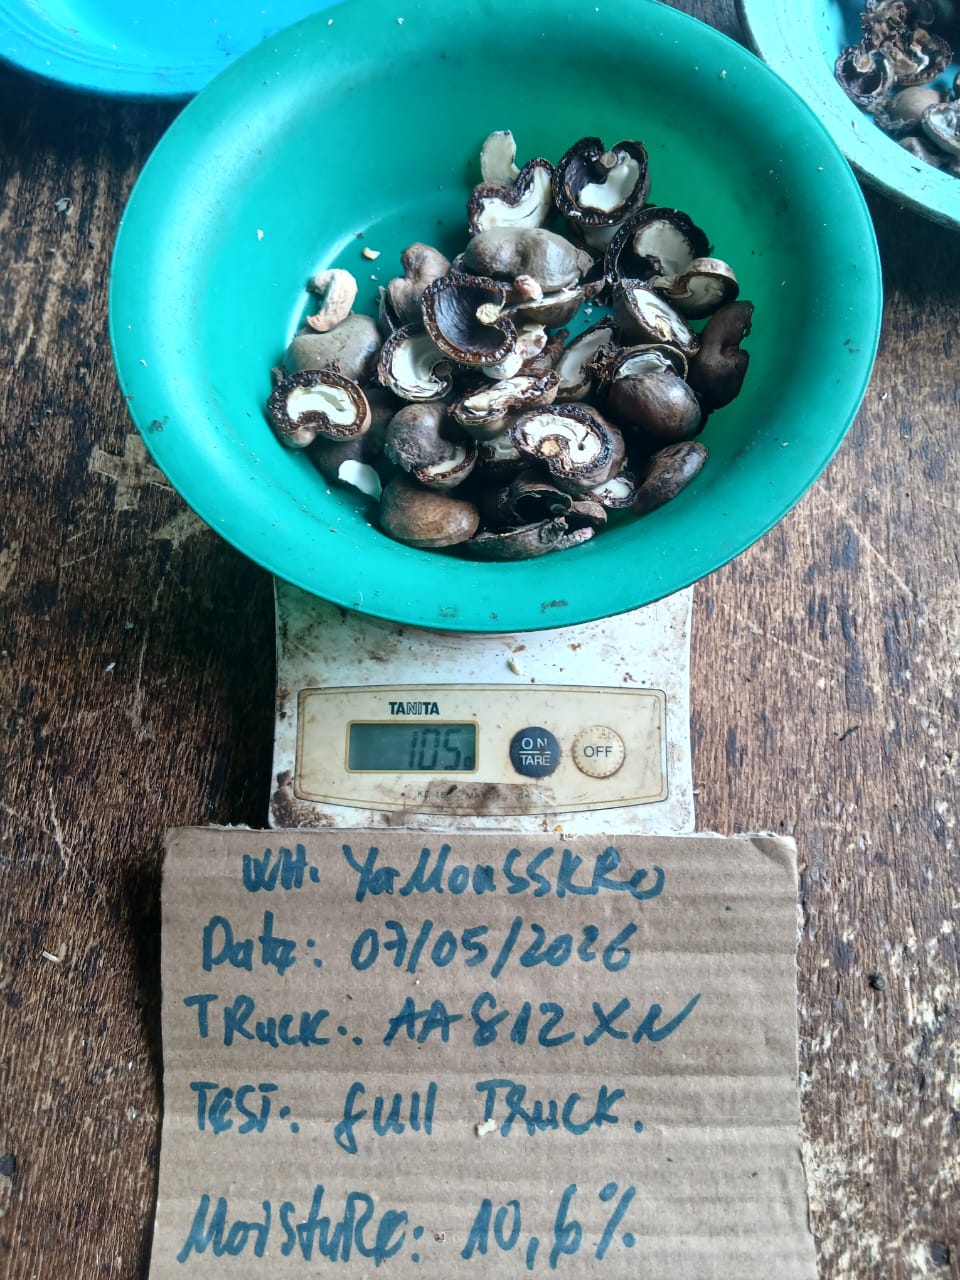 TANITA
105g
ON
TARE
OFF
WH. YaMouSSKRo
Date: 07/05/2026
TRuck.. AA812XN
TEST. full TRuck.
MoistuRe: 10,6%